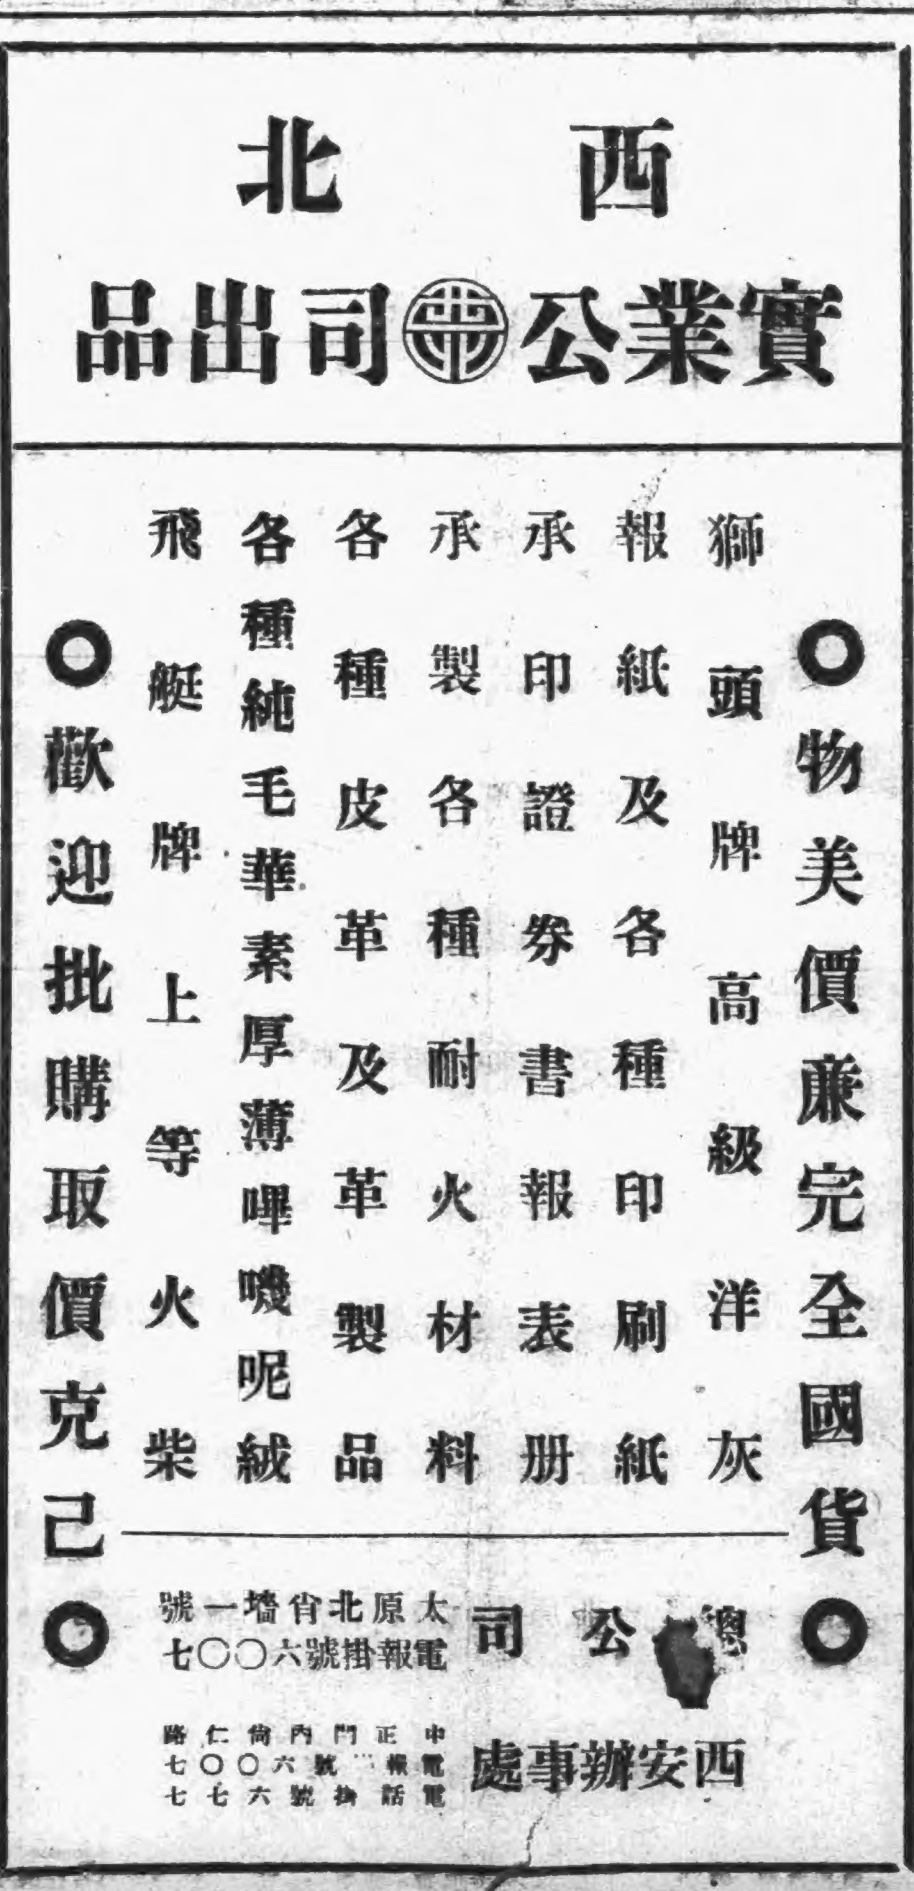 西北
實業公司出品
物美價廉完全國貨
獅頭牌高級洋灰
報紙及各種印刷紙
承印證券書報表册
承製各種耐火材料
各種皮革及革製品
各種純毛華素厚薄嗶嘰呢絨
飛艇牌上等火柴
歡迎批購取價克己
總公司
太原北肖墻一號
電報掛號六〇〇七
西安辦事處
中正門內尚仁路
電報號六〇〇七
電話掛號六七七